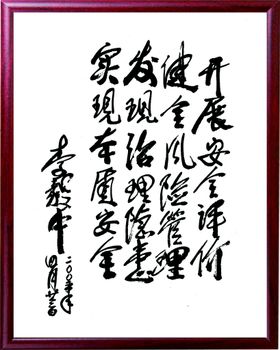 开展安全评价
健全风险管理
发现治理隐患
实现本质安全
李毅中
二〇〇五年
四月廿二日